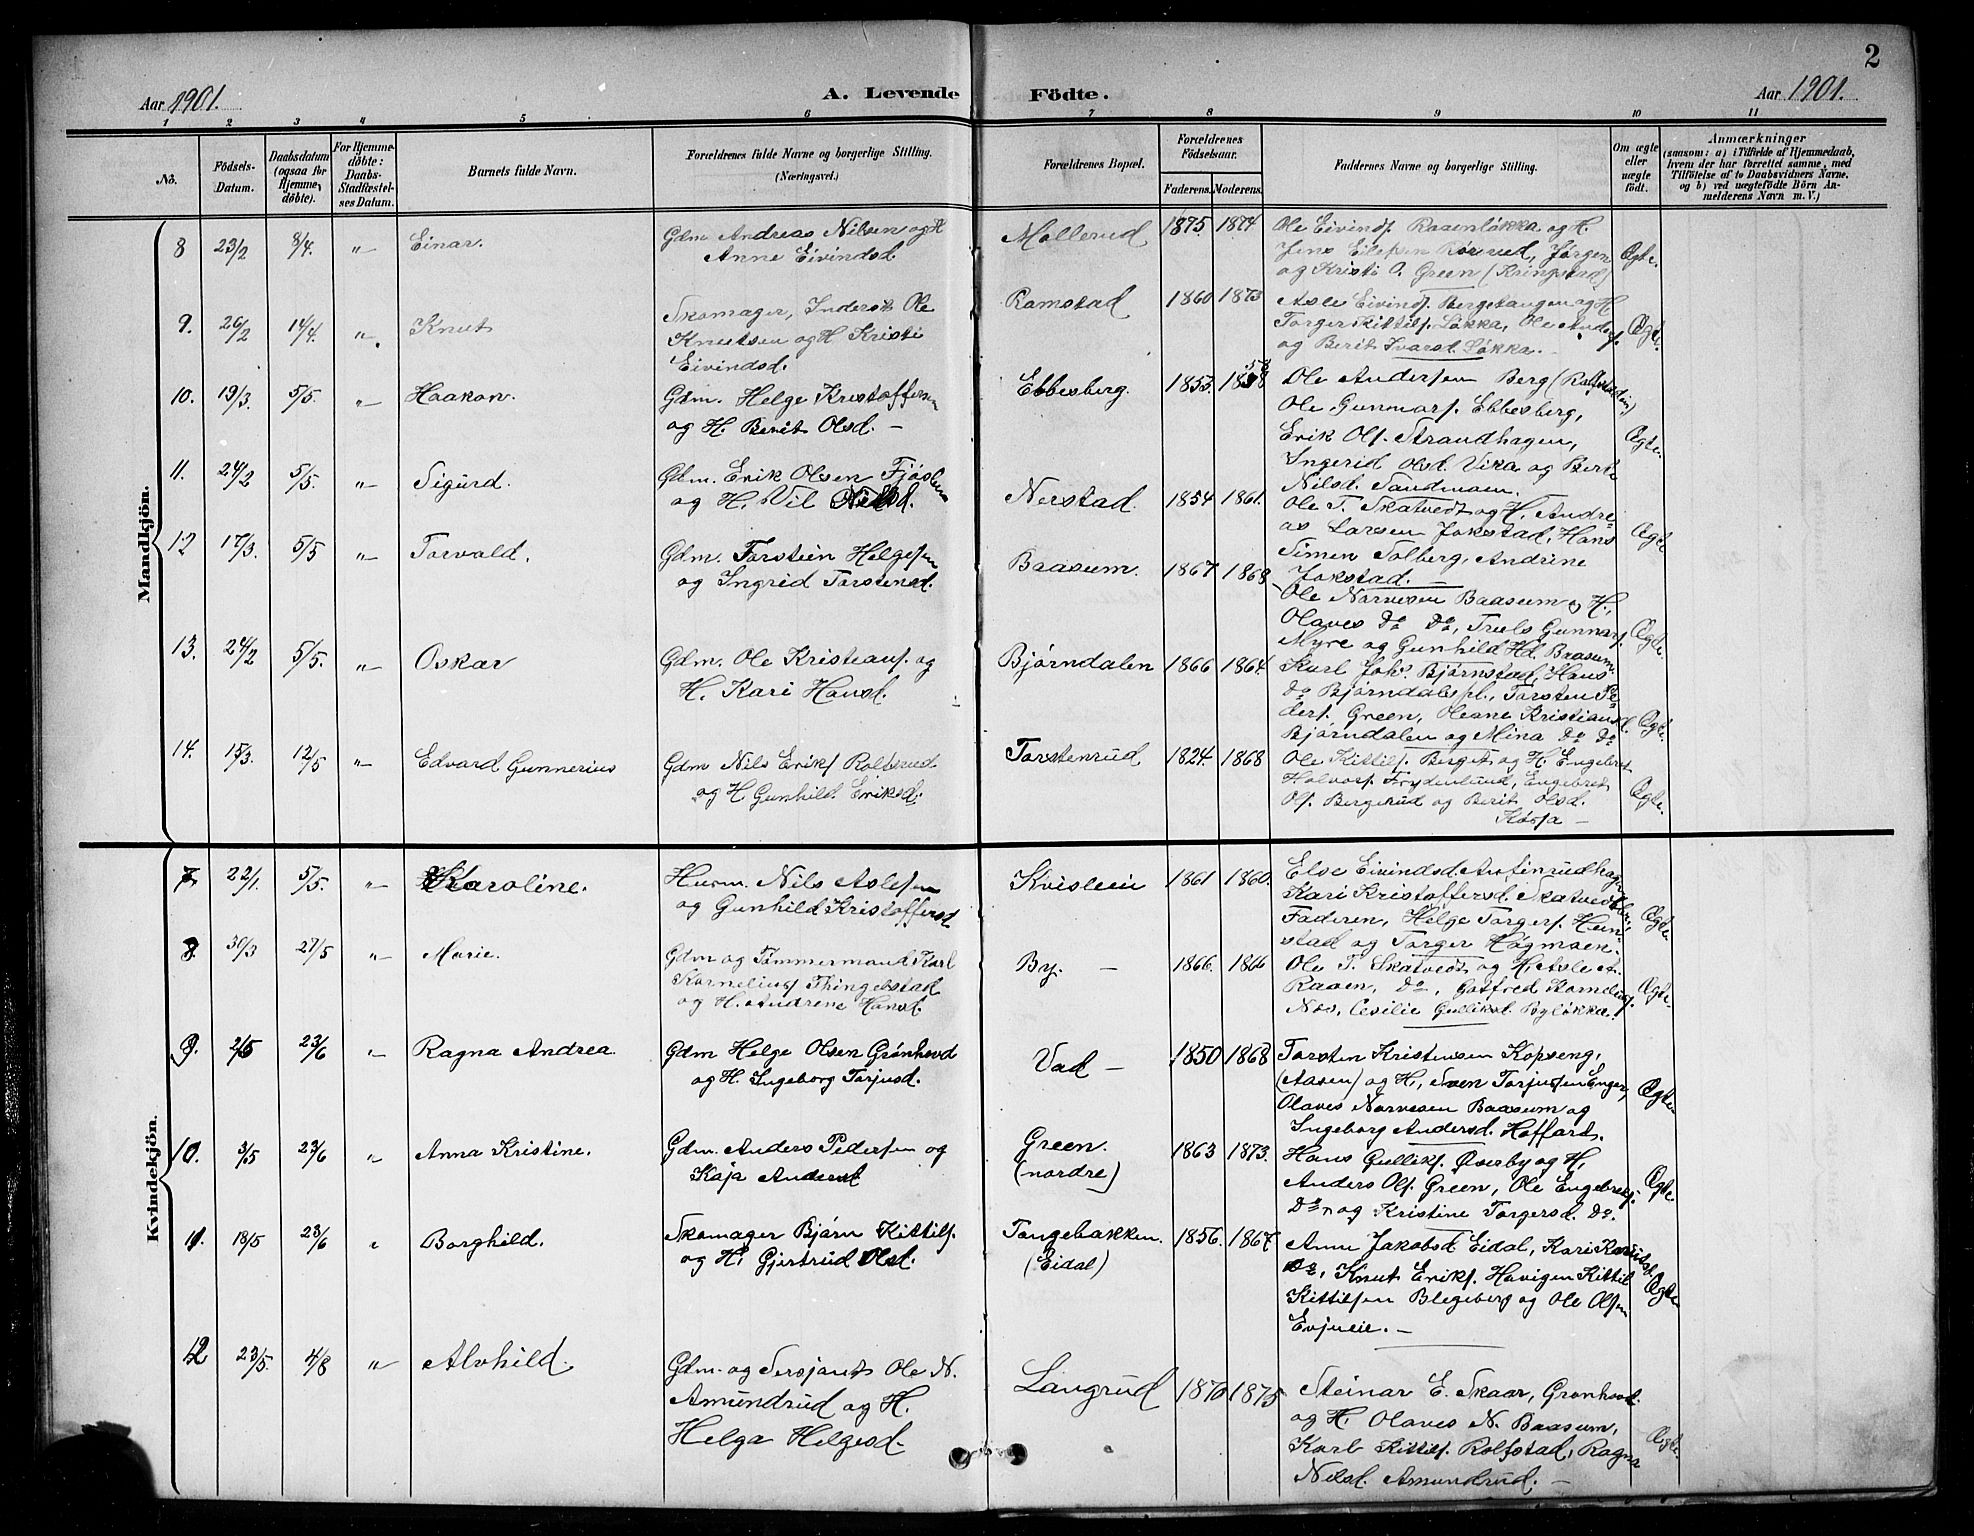 2
Aar 1901.
A. Levende Födte.
Aar 1901.
1 2 3 4 5 6 7 8 9 10 11
No.
Födsels-Datum.
Daabsdatum (ogsaa for Hjemmedøbte).
For Hjemmedøbte: Daabs-Stadfæstelses Datum.
Barnets fulde Navn.
Forældrenes fulde Navne og borgerlige Stilling.
(Næringsvei.)
Forældrenes Bopæl.
Forældrenes Födselsaar.
Faderens. Moderens.
Faddernes Navne og borgerlige Stilling.
Om ægte eller uægte födt.
Anmærkninger
(saasom: a) i Tilfælde af Hjemmedaab,
hvem der har forrettet samme, med
Tilföielse af to Daabsvidners Navne.
og b) ved uægtefödte Börn An-
melderens Navn m. V.)
Mandkjön.
8 23/2 8/4. „ Einar. Gdm Andreas Nilsen og H
Anne Eivindsd. Mollerud 1875. 1874 Ole Eivindsf. Raaenløkka og H.
Jens Eilefsen Rörerud, Jørgen
og Kristi O. Green (Kringstad) Ægte.
9. 26/2 14/4. „ Knut Skomager, Inderst Ole
Knutsen og H Kristi
Eivindsd. Ramstad 1860 1873 Asle Eivindsf. Bergetangen og H
Torger Kittilsf. Løkka, Ole Andersf.
og Berit Ivarsd. Løkka. Ægte.
10. 19/3. 5/5. „ Haakon. Gdm. Helge Kristoffersen
og H. Berit Olsd. — Ebbesberg. 1853. 1858 Ole Andersen Berg
Ole Gunnarsf. Ebbesberg,
Erik Olsf. Strandhagen,
Ingerid Olsd. Vika og Berte
Nilsd. Sandmoen. Ægte.
11. 24/2 5/5. „ Sigurd. Gdm. Erik Olsen
og H. Nerstad. 1854 1861. Ole T. Skatvedt og H. Andre-
as Larsen Jokstad, Hans
Simen Tolberg, Andrine
Jokstad. — Ægte
12 17/3. 5/5 „ Torvald. Gdm. Torstein Helgesen
og Ingrid Torstensd. Baasum. 1867 1868 Ole Narvesen Baasum og H.,
Olaves Do Do, Truls Gunnarsf.
Myre og Gunhild Hd. Baasum. Ægte.
13. 24/2 5/5. „ Oskar Gdm. Ole Kristiansf. og
H. Kari Hansd. Bjørndalen 1866 1864. Karl Joh. Bjørnstad, Hans
Do Bjørndalspl., Torsten Pe-
dersf. Green, Oleane Kristiansd.
Bjørndalen og Mina Do Do Ægte.
14. 15/3. 12/5 „ Edvard Gunnerius Gdm Nils Eriksf Rolfsrud
og H Gunhild Eriksd. Torstenrud 1824. 1868 Ole Kittilsf. Berget og H. Engebret
Halvorsf. Frydenlund, Engebret
Olsf. Bergerud og Berit Olsd.
Ægte.
Kvindekjön.
7 22/1. 5/5. „ Karoline. Husm. Nils Aslesen
og Gunhild Kristoffersd Kvisleie 1861 1860. Else Eivindsd. Arfinrudhagen
Kari Kristoffersd. Skatvedt
Faderen, Helge Torgersf. Hen-
stad og Torger Høgmoen. Ægte.
8. 30/3 27/5 „ Marie. Gdm og Tømmermand Karl
Korneliusf Thingelstad
og H. Andrene Hansd. By. — 1866. 1866 Ole T. Skatvedt og H, Asle A.
Raaen, Do, Gotfred Korneliusf.
Nos, Cesilie Gulliksd. Byløkka. Ægte.
9. 2/5 23/6 „ Ragna Andrea. Gdm Helge Olsen Grønhovd
og H. Ingeborg Torjusd. Vad — 1850 1868 Torsten Kristensen Kopseng,
(Aasen) og H, Sven Torjusen Enger,
Olaves Narvesen Baasum og
Ingeborg Andersd. Hoffart. Ægte.
10. 3/5 23/6 „ Anna Kristine. Gdm. Anders Pedersen og
Kaja Andersd Green.
(nordre) 1863 1873. Hans Gulliksf. Øverby og H,
Anders Olsf. Green, Ole Engebretsf.
Do og Kristine Torgersd. Do. Ægte.
11. 18/5 23/6 „ Borghild. Skomager Bjørn Kittilsf.
og H, Gjertrud Olsd. Tangebakken.
(Eidal) 1856. 1867. Anne Jakobsd Eidal, Kari
Do, Knut Eriksf. Havigen Kittil
Kittilsen Blegeberg og Ole Olsen
Evjueie. — Ægte
12 23/5. 4/8 „ Alvhild. Gdm. og Sersjant Ole N.
Amundrud og H.
Helga Helgesd. Langrud 1870 1875 Steinar E. Skaar, Grønhovd
og H, Olaves N. Baasum,
Karl Kittilsf. Rolfstad, Ragna
Nilsd. Amundrud. — Ægte.